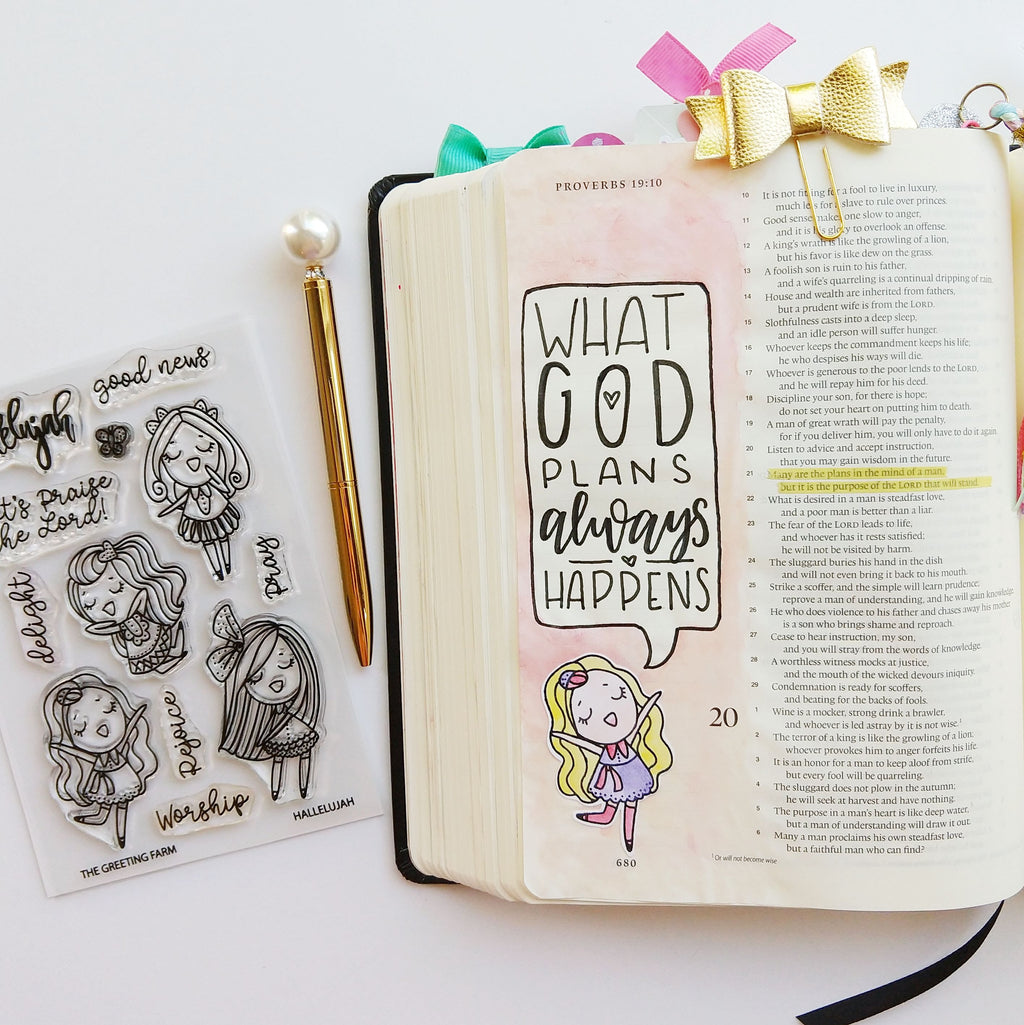 good news
Let's Praise
the Lord!
pray
delight
Rejoice
Worship
HALLELUJAH
THE GREETING FARM
PROVERBS 19:10
WHAT
GOD
PLANS
always
HAPPENS
680
10 It is not fitting for a fool to live in luxury,
much less for a slave to rule over princes.
11 Good sense makes one slow to anger,
and it is his glory to overlook an offense.
12 A king's wrath is like the growling of a lion,
but his favor is like dew on the grass.
13 A foolish son is ruin to his father,
and a wife's quarreling is a continual dripping of rain.
14 House and wealth are inherited from fathers,
but a prudent wife is from the LORD.
15 Slothfulness casts into a deep sleep,
and an idle person will suffer hunger.
16 Whoever keeps the commandment keeps his life;
he who despises his ways will die.
17 Whoever is generous to the poor lends to the LORD,
and he will repay him for his deed.
18 Discipline your son, for there is hope;
do not set your heart on putting him to death.
19 A man of great wrath will pay the penalty,
for if you deliver him, you will only have to do it again.
20 Listen to advice and accept instruction,
that you may gain wisdom in the future.
21 Many are the plans in the mind of a man,
but it is the purpose of the LORD that will stand.
22 What is desired in a man is steadfast love,
and a poor man is better than a liar.
23 The fear of the LORD leads to life,
and whoever has it rests satisfied;
he will not be visited by harm.
24 The sluggard buries his hand in the dish
and will not even bring it back to his mouth.
25 Strike a scoffer, and the simple will learn prudence;
reprove a man of understanding, and he will gain knowledge.
26 He who does violence to his father and chases away his mother
is a son who brings shame and reproach.
27 Cease to hear instruction, my son,
and you will stray from the words of knowledge.
28 A worthless witness mocks at justice,
and the mouth of the wicked devours iniquity.
29 Condemnation is ready for scoffers,
and beating for the backs of fools.
20
1 Wine is a mocker, strong drink a brawler,
and whoever is led astray by it is not wise.1
2 The terror of a king is like the growling of a lion;
whoever provokes him to anger forfeits his life.
3 It is an honor for a man to keep aloof from strife,
but every fool will be quarreling.
4 The sluggard does not plow in the autumn;
he will seek at harvest and have nothing.
5 The purpose in a man's heart is like deep water,
but a man of understanding will draw it out.
6 Many a man proclaims his own steadfast love,
but a faithful man who can find?
1 Or will not become wise